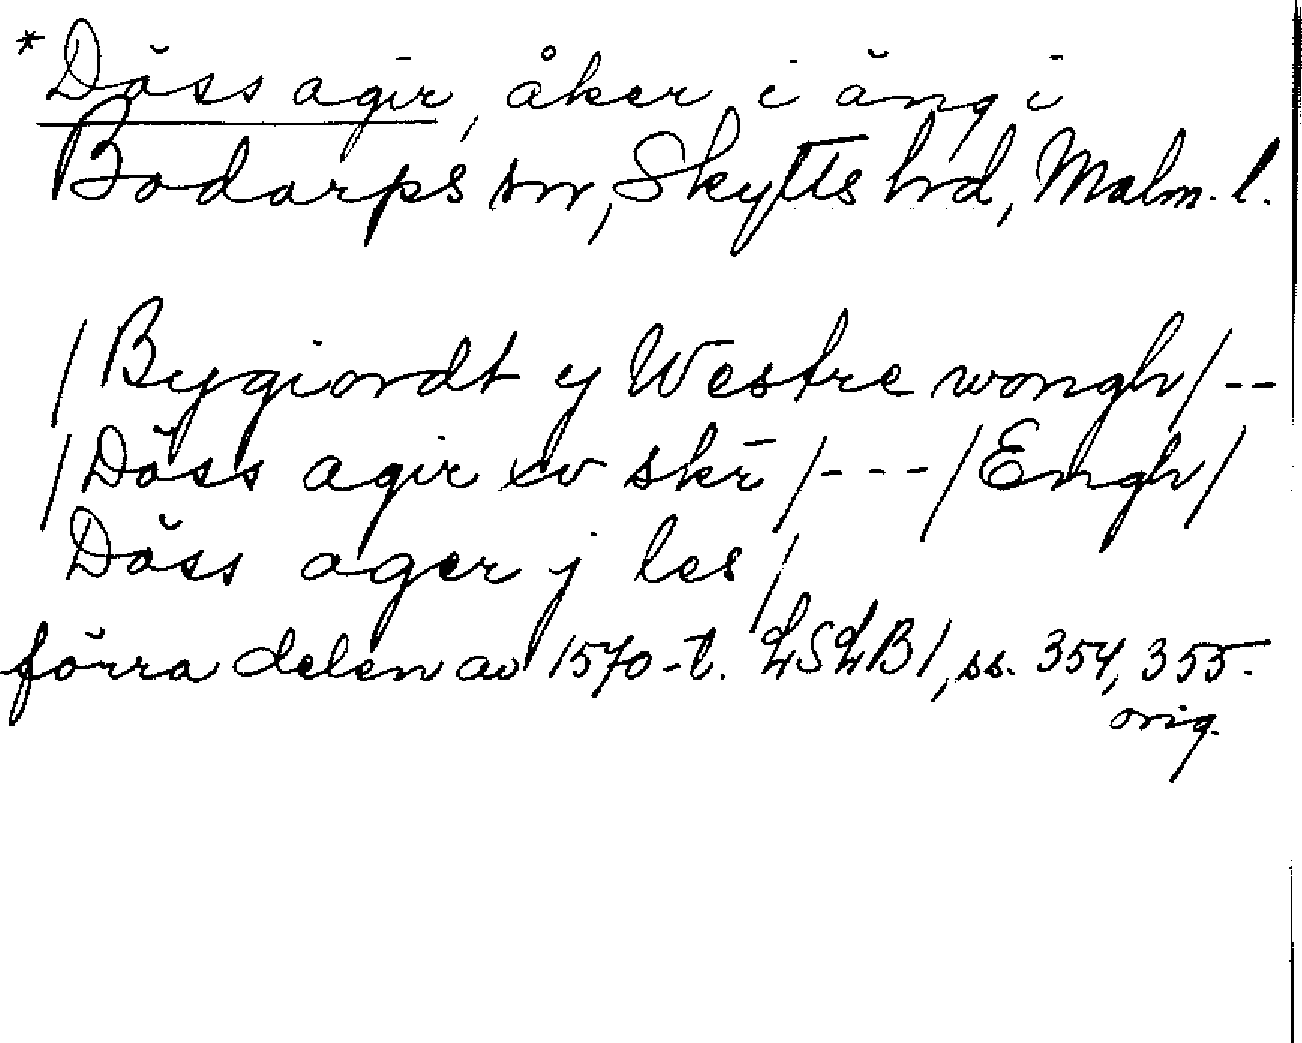 *Döss agir, åker i äng i
Bodarps sn, Skytts hd, Malm. l.
/Bygiordt y Westre wongh/--
/Döss agir xv skr̄/---/Engh/
Döss ager j les/
förra delen av 1570-t. LSLB1, ss. 354, 355.
orig.